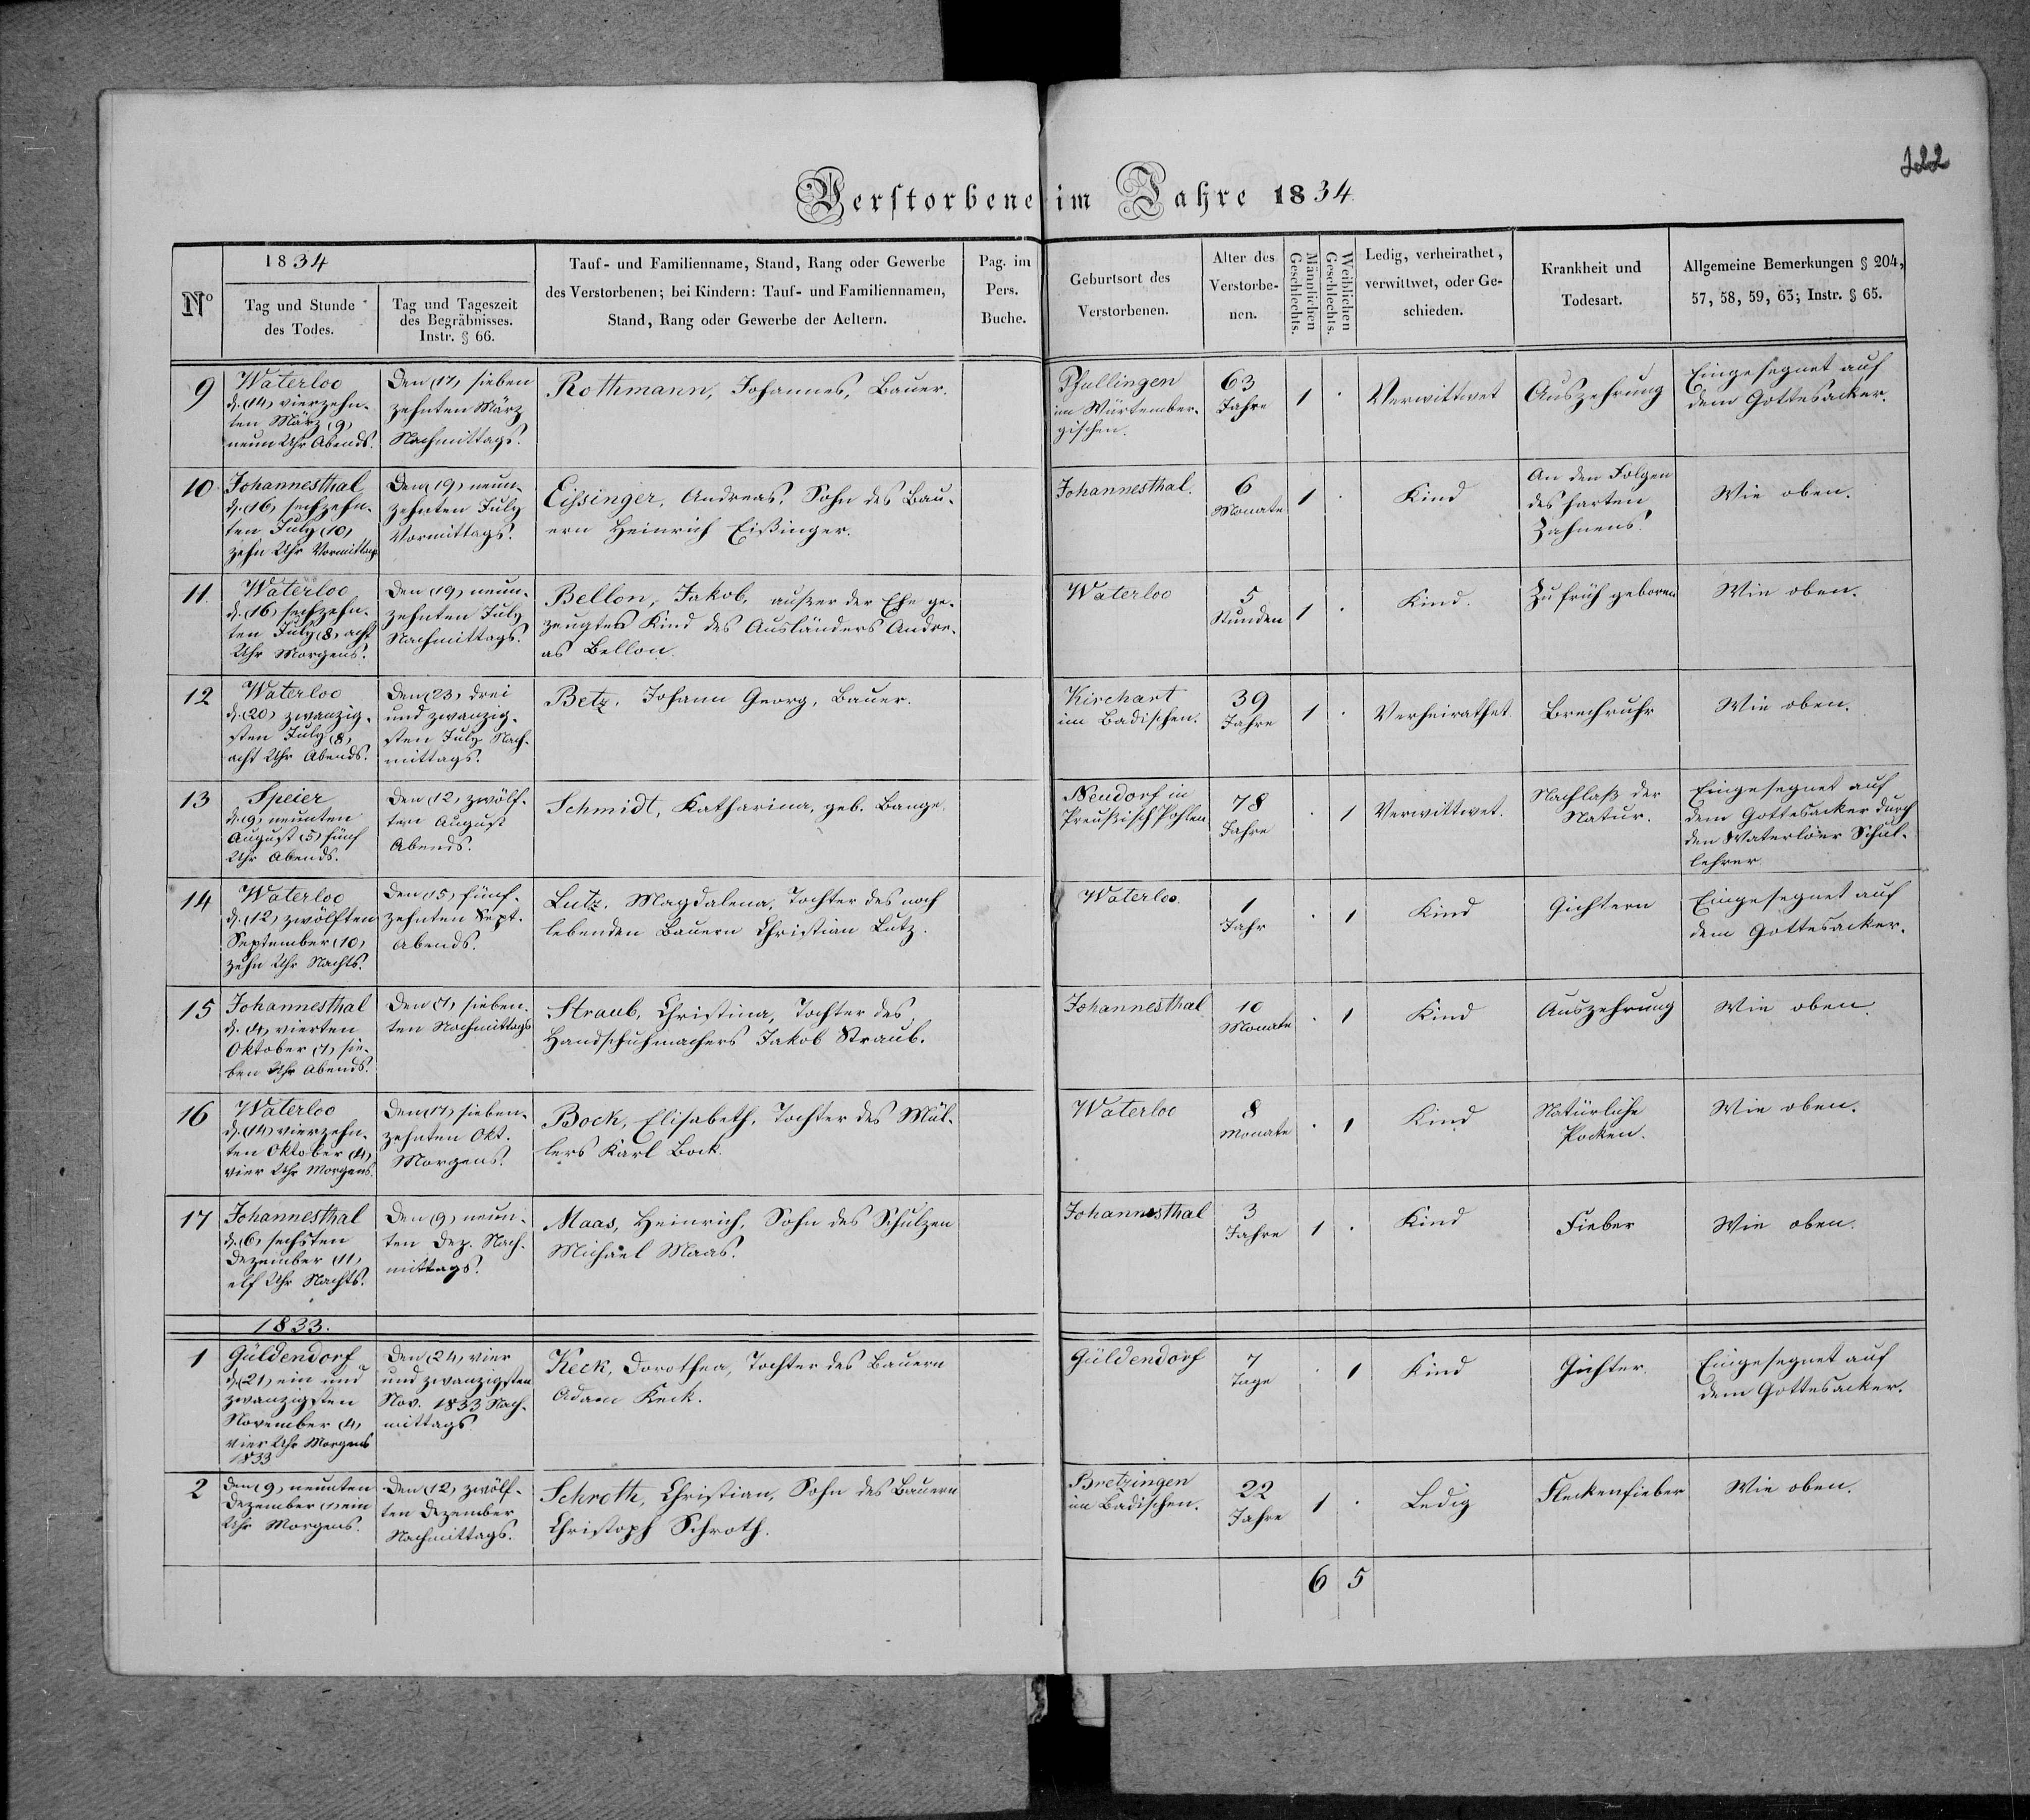 122
Verstorbene im Jahre 1834
No
1834
Tag und Stunde
des Todes.
Tag und Tageszeit
des Begräbnisses.
Instr. § 66.
Tauf- und Familienname, Stand, Rang oder Gewerbe
des Verstorbenen; bei Kindern: Tauf- und Familiennamen,
Stand, Rang oder Gewerbe der Aeltern.
Pag. im
Pers.
Buche.
Geburtsort des
Verstorbenen.
Alter des
Verstorbe-
nen.
Männlichen
Geschlechts.
Weiblichen
Geschlechts.
Ledig, verheirathet,
verwittwet, oder Ge-
schieden.
Krankheit und
Todesart.
Allgemeine Bemerkungen § 204,
57, 58, 59, 63; Instr. § 65.
9
Waterloo
d. (14) vierzehn-
ten März (9)
neun Uhr Abends.
Den (17) sieben
zehnten März
Nachmittags.
Rothmann, Johannes, Bauer.
Pfullingen
im Würtember-
gischen.
63
Jahre
1
Verwittwet
Auszehrung
Eingesegnet auf
dem Gottesacker.
10
Johannesthal
d. (16) sechzehn-
ten July (10)
zehn Uhr Vormittag
Den (19) neun-
zehnten July
Vormittags.
Eißinger, Andreas, Sohn des Bau-
ern Heinrich Eißinger.
Johannesthal.
6
Monate
1
Kind
An den Folgen
des harten
Zahnens.
Wie oben.
11.
Waterloo
d. (16) sechzehn-
ten July (8) acht
Uhr Morgens.
Den (19) neun-
zehnten July
Nachmittags.
Bellon, Jakob, außer der Ehe ge-
zeugtes Kind des Ausländers Andre-
as Bellon.
Waterloo
5
Stunden
1
Kind.
Zu früh geboren
Wie oben.
12
Waterloo
d. (20) zwanzig-
sten July (8)
acht Uhr Abends.
Den (23) drei
und zwanzig-
sten July Nach-
mittags.
Betz, Johann Georg, Bauer.
Kirchart
im Badischen.
39
Jahre
1
Verheirathet
Brechruhr
Wie oben.
13
Speier
d. (9) neunten
August (5) fünf
Uhr Abends.
Den (12) zwölf-
ten August
Abends.
Schmidt, Katharina, geb. Bange.
Neudorf in
Preußisch Pohlen
78
Jahre
1
Verwittwet.
Nachlaß der
Natur.
Eingesegnet auf
dem Gottesacker durch
den Waterlöer Schul-
lehrer
14
Waterloo
d. (12) zwölften
September (10)
zehn Uhr Nachts.
Den (15) fünf-
zehnten Sept.
Abends.
Lutz, Magdalena, Tochter des noch
lebenden Bauern Christian Lutz.
Waterloo.
1
Jahr
1
Kind
Gichtern
Eingesegnet auf
dem Gottesacker.
15
Johannesthal
d. (4) vierten
Oktober (7) sie-
ben Uhr Abends.
Den (7) sieben-
ten Nachmittags
Straub, Christina, Tochter des
Handschuhmachers Jakob Straub.
Johannesthal
10
Monate
1
Kind
Auszehrung
Wie oben.
16
Waterloo
d. (14) vierzehn-
ten Oktober (4)
vier Uhr Morgens.
Den (17) sieben-
zehnten Okt.
Morgens.
Bock, Elisabeth, Tochter des Mül-
lers Karl Bock.
Waterloo
8
Monate
1
Kind
Natürliche
Pocken.
Wie oben.
17
Johannesthal
d. (6) sechsten
Dezember (11)
elf Uhr Nachts.
Den (9) neun-
ten Dez. Nach-
mittags.
Maas, Heinrich, Sohn des Schulzen
Michael Maas.
Johannesthal
3
Jahre
1
Kind
Fieber
Wie oben.
1833.
1
Güldendorf
d. (21) ein und
zwanzigsten
November (4)
vier Uhr Morgens
1833
Den (24) vier
und zwanzigsten
Nov. 1833 Nach-
mittags
Keck, Dorothea, Tochter des Bauern
Adam Keck.
Güldendorf
7
Tage
1
Kind
Gichter.
Eingesegnet auf
dem Gottesacker.
2
Den (9) neunten
Dezember (1) ein
Uhr Morgens.
Den (12) zwölf-
ten Dezember
Nachmittags.
Schroth, Christian, Sohn des Bauern
Christoph Schroth.
Bretzingen
im Badischen.
22
Jahre
1
Ledig
Fleckenfieber
Wie oben.
6 5